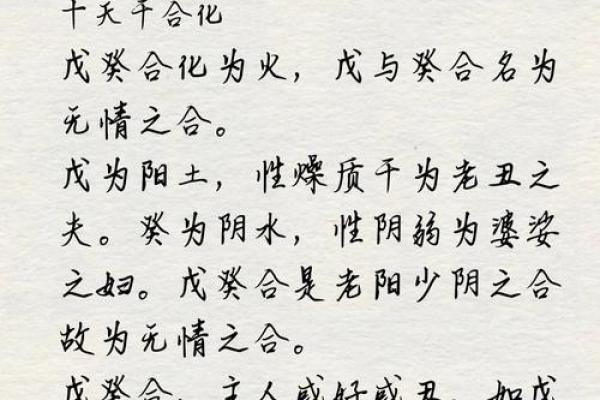 十天干合化
戊癸合化为火，戊与癸合名为
无情之合。
戊为阳土，性燥质干为老丑之
夫。癸为阴水，性阴弱为婆娑
之妇。戊癸合是老阳少阴之合
故为无情之合。
戊癸合，主人或好或丑，如戊